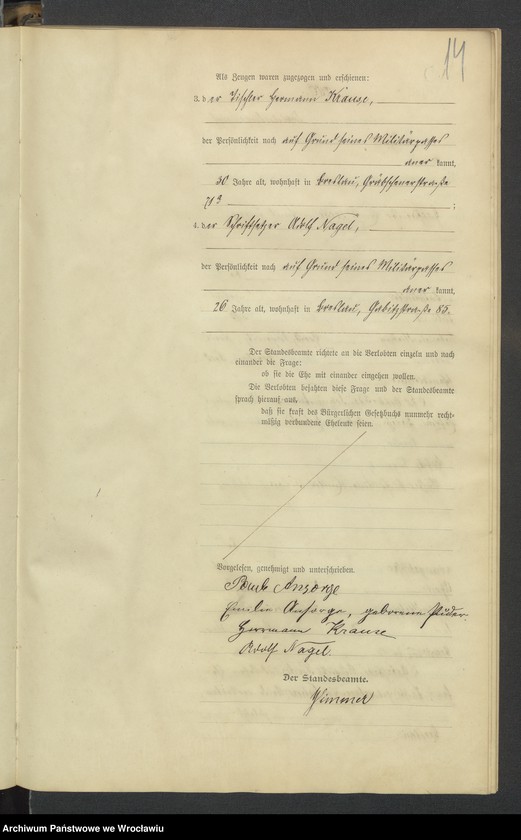 14
Als Zeugen waren zugezogen und erschienen:
3. der Tischler Hermann Krause,
der Persönlichkeit nach auf Grund seines Militärpasses
aner kannt,
30 Jahre alt, wohnhaft in Breslau, Gräbschenerstraße
71a ;
4. der Schriftsetzer Adolf Nagel,
der Persönlichkeit nach auf Grund seines Militärpasses
aner kannt,
26 Jahre alt, wohnhaft in Breslau, Gabitzstraße 85.
Der Standesbeamte richtete an die Verlobten einzeln und nach
einander die Frage:
ob sie die Ehe mit einander eingehen wollen.
Die Verlobten bejahten diese Frage und der Standesbeamte
sprach hierauf aus,
daß sie kraft des Bürgerlichen Gesetzbuchs nunmehr recht-
mäßig verbundene Eheleute seien.
Vorgelesen, genehmigt und unterschrieben.
Paul Ansorge
Ansorge, geborene
Herrmann Krause
Adolf Nagel.
Der Standesbeamte.
Archiwum Państwowe we Wrocławiu